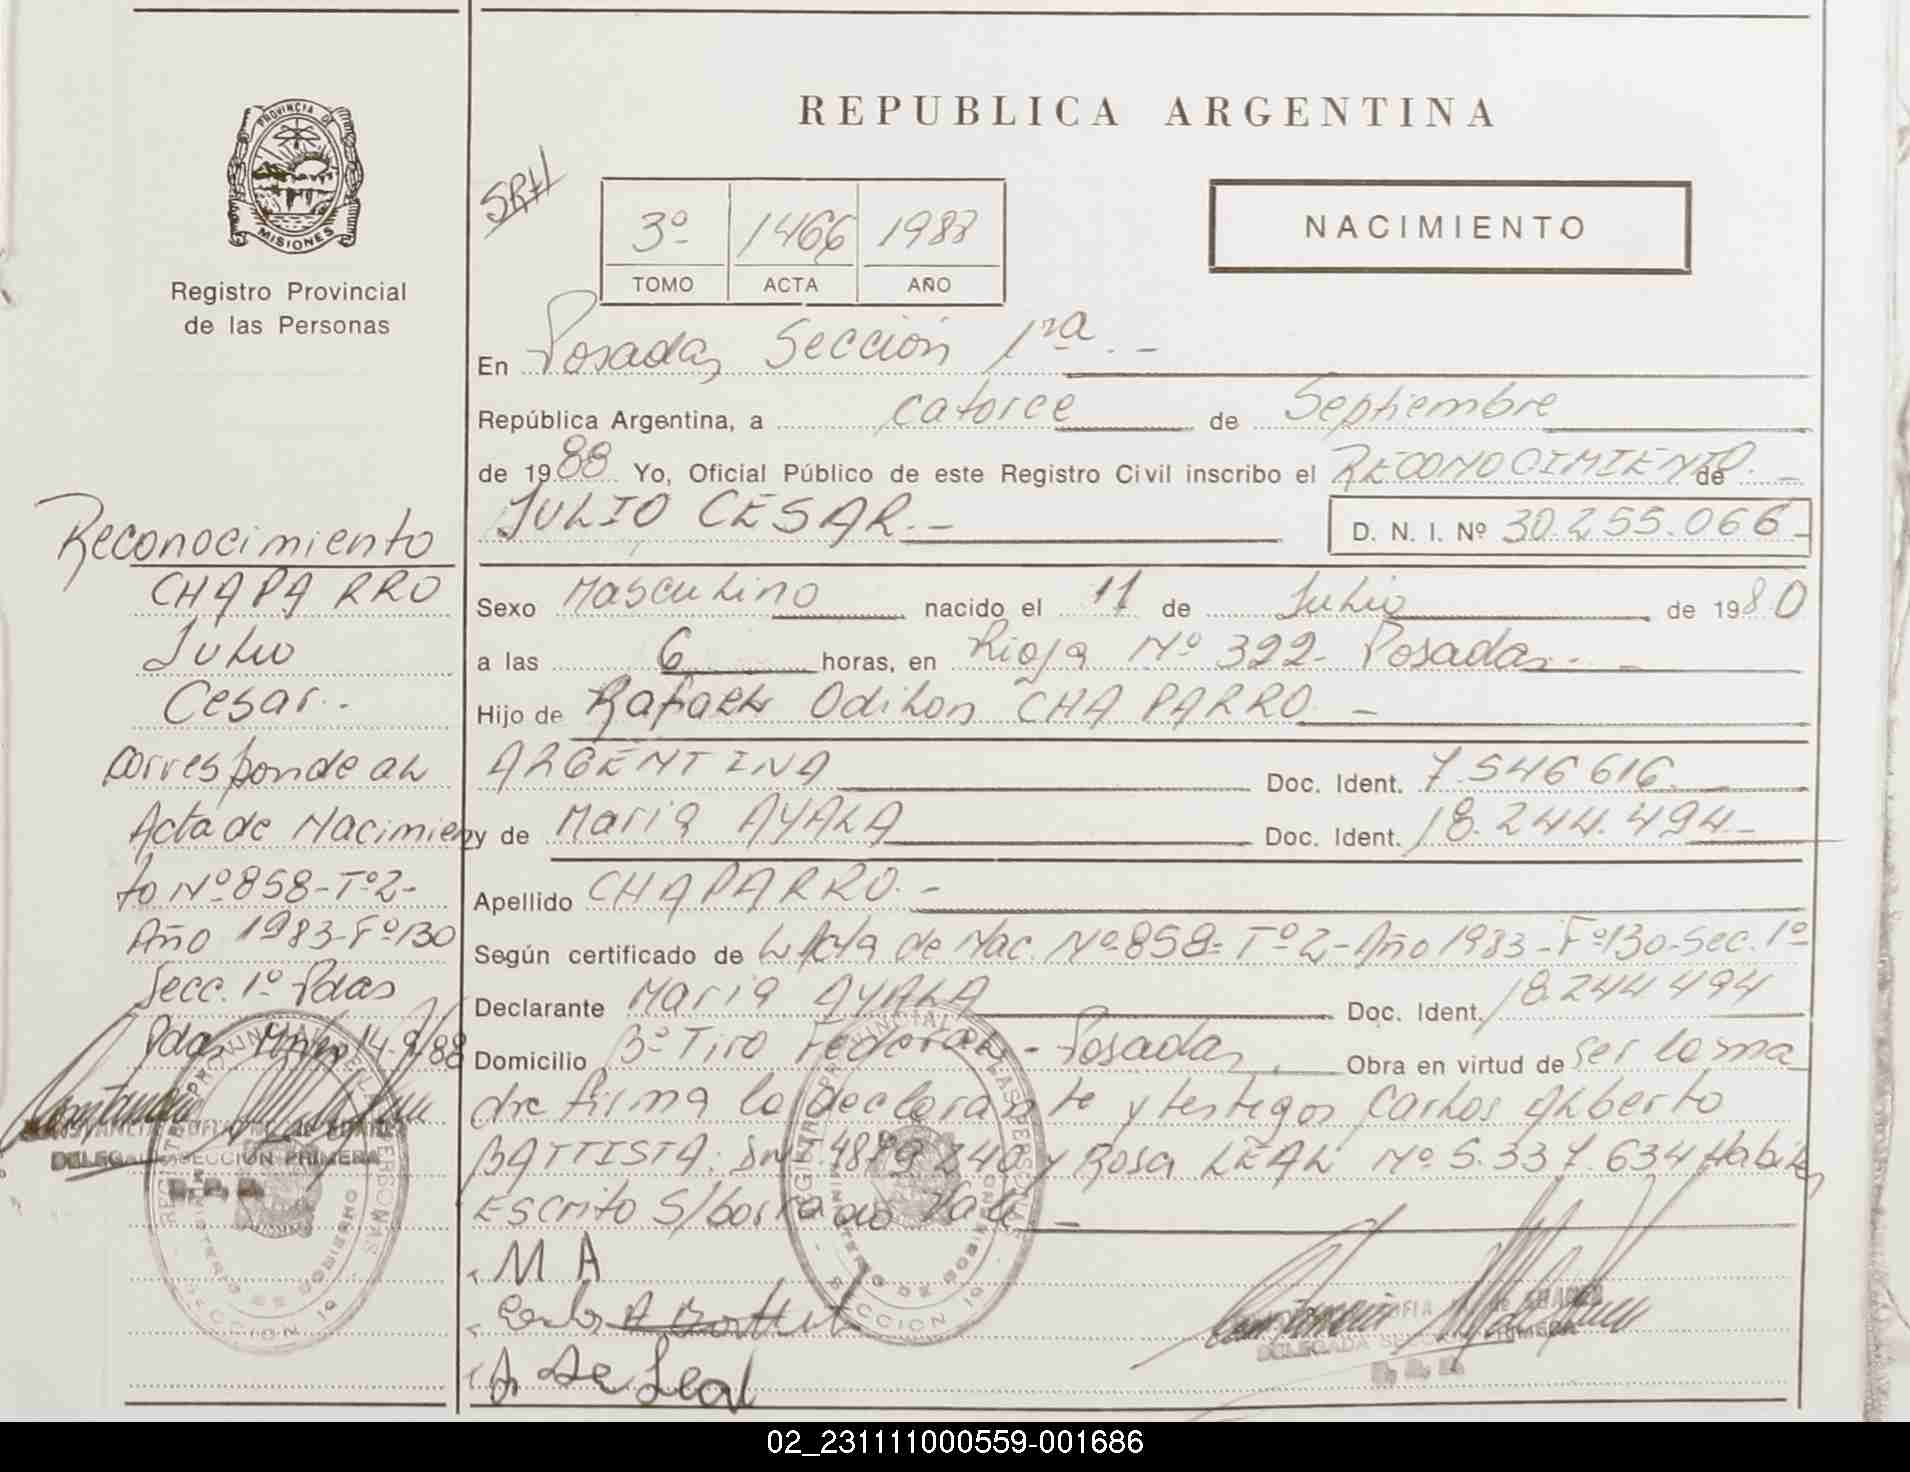 PROVINCIA DE
MISIONES
Registro Provincial
de las Personas
REPUBLICA ARGENTINA
SRH
3º 1466 1988
TOMO ACTA AÑO
NACIMIENTO
En Posadas Sección 1ra.-
República Argentina, a catorce de Septiembre
de 1988 Yo, Oficial Público de este Registro Civil inscribo el RECONOCIMIENTO.- de
JULIO CESAR.-
D. N. I. Nº 30.255.066-
Sexo Masculino nacido el 11 de Julio de 1980
a las 6 horas, en Rioja Nº 322- Posadas.-
Hijo de Rafael Odilon CHAPARRO.-
ARGENTINA Doc. Ident. 7.546616
y de Maria AYALA Doc. Ident. 18.244.494-
Apellido CHAPARRO.-
Según certificado de L/Acta de Nac. Nº 858- Tº 2- Año 1983- Fº 130- Sec. 1º
Declarante Maria AYALA Doc. Ident. 18.244.494
Domicilio Bº Tiro Federal - Posadas, Obra en virtud de ser la ma
dre firma la declarante y testigos Carlos Alberto
BATTISTA: DNI. 4879240 y Rosa LEAL Nº 5.337.634 Habiles
Escrito S/borrado Vale -
M A
Leal
Reconocimiento
CHAPARRO
Julio
Cesar.-
Corresponde al
Acta de Nacimien
to Nº 858- Tº 2-
Año 1983- Fº 130
Secc. 1º Pdas
Pdas, Mnes, 14-9/88
DELEGADA SECCION PRIMERA
R. P. P.
DELEGADA SECCION PRIMERA
R. P. P.
REGISTRO PROVINCIAL DE LAS PERSONAS
MINISTERIO DE GOBIERNO
SECCION 1º
REGISTRO PROVINCIAL DE LAS PERSONAS
MINISTERIO DE GOBIERNO
SECCION 1º
02_231111000559-001686